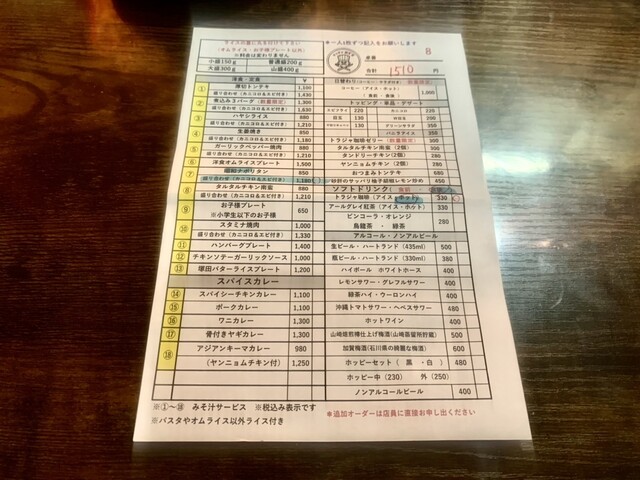 ライスの量に丸を付けて下さい
(オムライス・お子様プレート以外)
※料金は変わりません
小盛150g 普通盛200g
大盛300g 山盛400g
※一人1枚ずつ記入をお願いします
卓番 8
合計 1510 円
洋食・定食 ¥
① 厚切トンテキ 1,100
盛り合わせ(カニコロ&エビ付き) 1,430
② 煮込みハンバーグ(数量限定) 1,300
盛り合わせ(カニコロ&エビ付き) 1,630
③ ハヤシライス 880
盛り合わせ(カニコロ&エビ付き) 1,210
④ 生姜焼き 850
盛り合わせ(カニコロ&エビ付き) 1,180
⑤ ガーリックペッパー焼肉 880
盛り合わせ(カニコロ&エビ付き) 1,210
⑥ 洋食オムライスプレート 1,500
⑦ 昭和ナポリタン 850
盛り合わせ(カニコロ&エビ付き) 1,180
⑧ タルタルチキン南蛮 880
盛り合わせ(カニコロ&エビ付き) 1,210
⑨ お子様プレート 650
※小学生以下のお子様
⑩ スタミナ焼肉 1,000
盛り合わせ(カニコロ&エビ付き) 1,330
⑪ ハンバーグプレート 1,400
⑫ チキンソテーガーリックソース 1,000
⑬ 塚田バターライスプレート 1,200
スパイスカレー
⑭ スパイシーチキンカレー 1,100
⑮ ポークカレー 1,100
⑯ ワニカレー 1,300
⑰ 骨付きヤギカレー 1,300
⑱ アジアンキーマカレー 980
(ヤンニョムチキン付) 1,250
コーヒー(アイス・ホット)
(食前・食後) 1,200
トッピング・単品・デザート
220 カニコロ 220
130 350
バニラアイス 350
トラジャ珈琲ゼリー(数量限定) 350
タルタルチキン南蛮(2個) 500
タンドリーチキン(2個) 280
ヤンニョムチキン(2個) 280
おつまみトンテキ 680
450
ソフトドリンク(食前・食後)
トラジャ珈琲(アイス・ホット) 330
アールグレイ紅茶(アイス・ホット) 330
ピンコーラ・オレンジ
烏龍茶・緑茶 280
アルコール・ノンアルビール
生ビール・ハートランド(435ml) 500
瓶ビール・ハートランド(330ml) 380
ハイボール ホワイトホース 400
レモンサワー・グレフルサワー 400
緑茶ハイ・ウーロンハイ 400
沖縄トマトサワー・ヘベスサワー 480
ホットワイン 400
山崎焙煎樽仕上げ梅酒(山崎蒸留所貯蔵) 500
加賀梅酒(石川県の綺麗な梅酒) 600
ホッピーセット(黒・白) 480
ホッピー中(230) 外(250)
ノンアルコールビール 400
※①~⑱ みそ汁サービス ※税込み表示です
※パスタやオムライス以外ライス付き
※追加オーダーは店員に直接お申し出ください